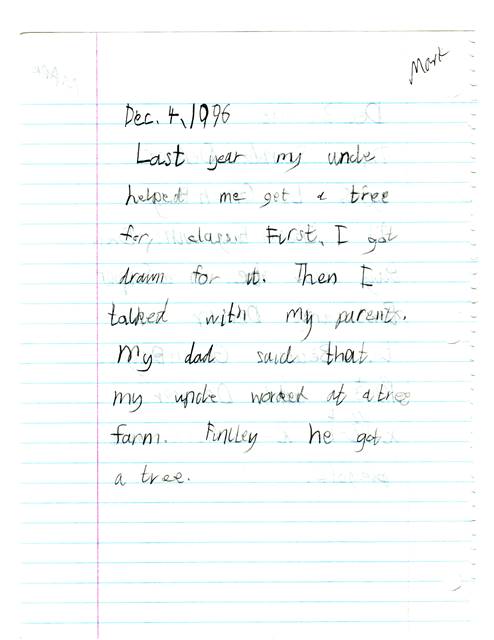 Mark
Dec. 4, 1996
Last year my uncle
helped me get a tree
for, class. First, I got
drawn for it. Then I
talked with my parent.
My dad said that
my uncle worked at a tree
farm. Finlley he got
a tree.